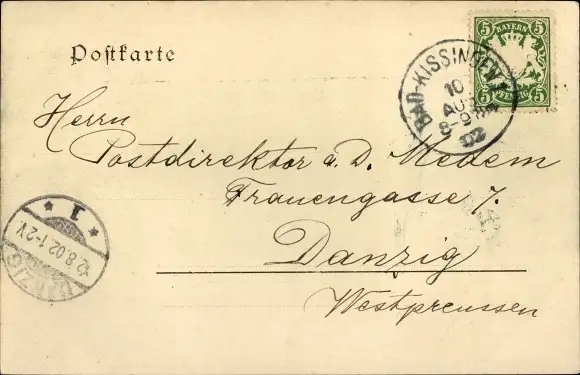 Postkarte
5 BAYERN 5
5 PFENNIG 5
BAD-KISSINGEN
10
AUG
8-9 Nm
02
Herrn
Postdirektor a. D. Medem
Frauengasse 7.
Danzig
Westpreussen
* 1 *
12.8.02.1-2V.
DANZIG